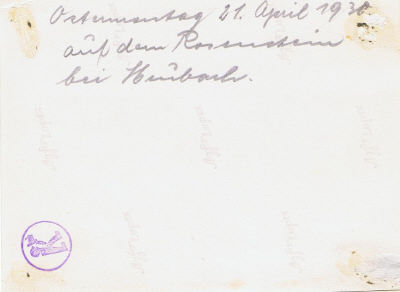 Ostermontag 21. April 1930
auf dem Rosenstein
bei Heubach.